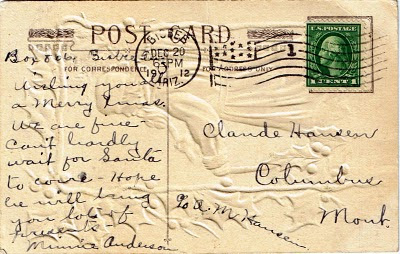 POST CARD.
FOR CORRESPONDENCE
FOR ADDRESS ONLY
BISBEE
DEC 20
6 PM
1912
ARIZ.
1
U.S. POSTAGE
Box 886 Bisbee
Wishing you
a Merry Xmas.
We are fine -
can't hardly
wait for Santa
to come - Hope
he will bring
you lots of
presents -
Minnie Anderson
Claude Hansen
Columbus
Mont.
c/o A. M. Hansen